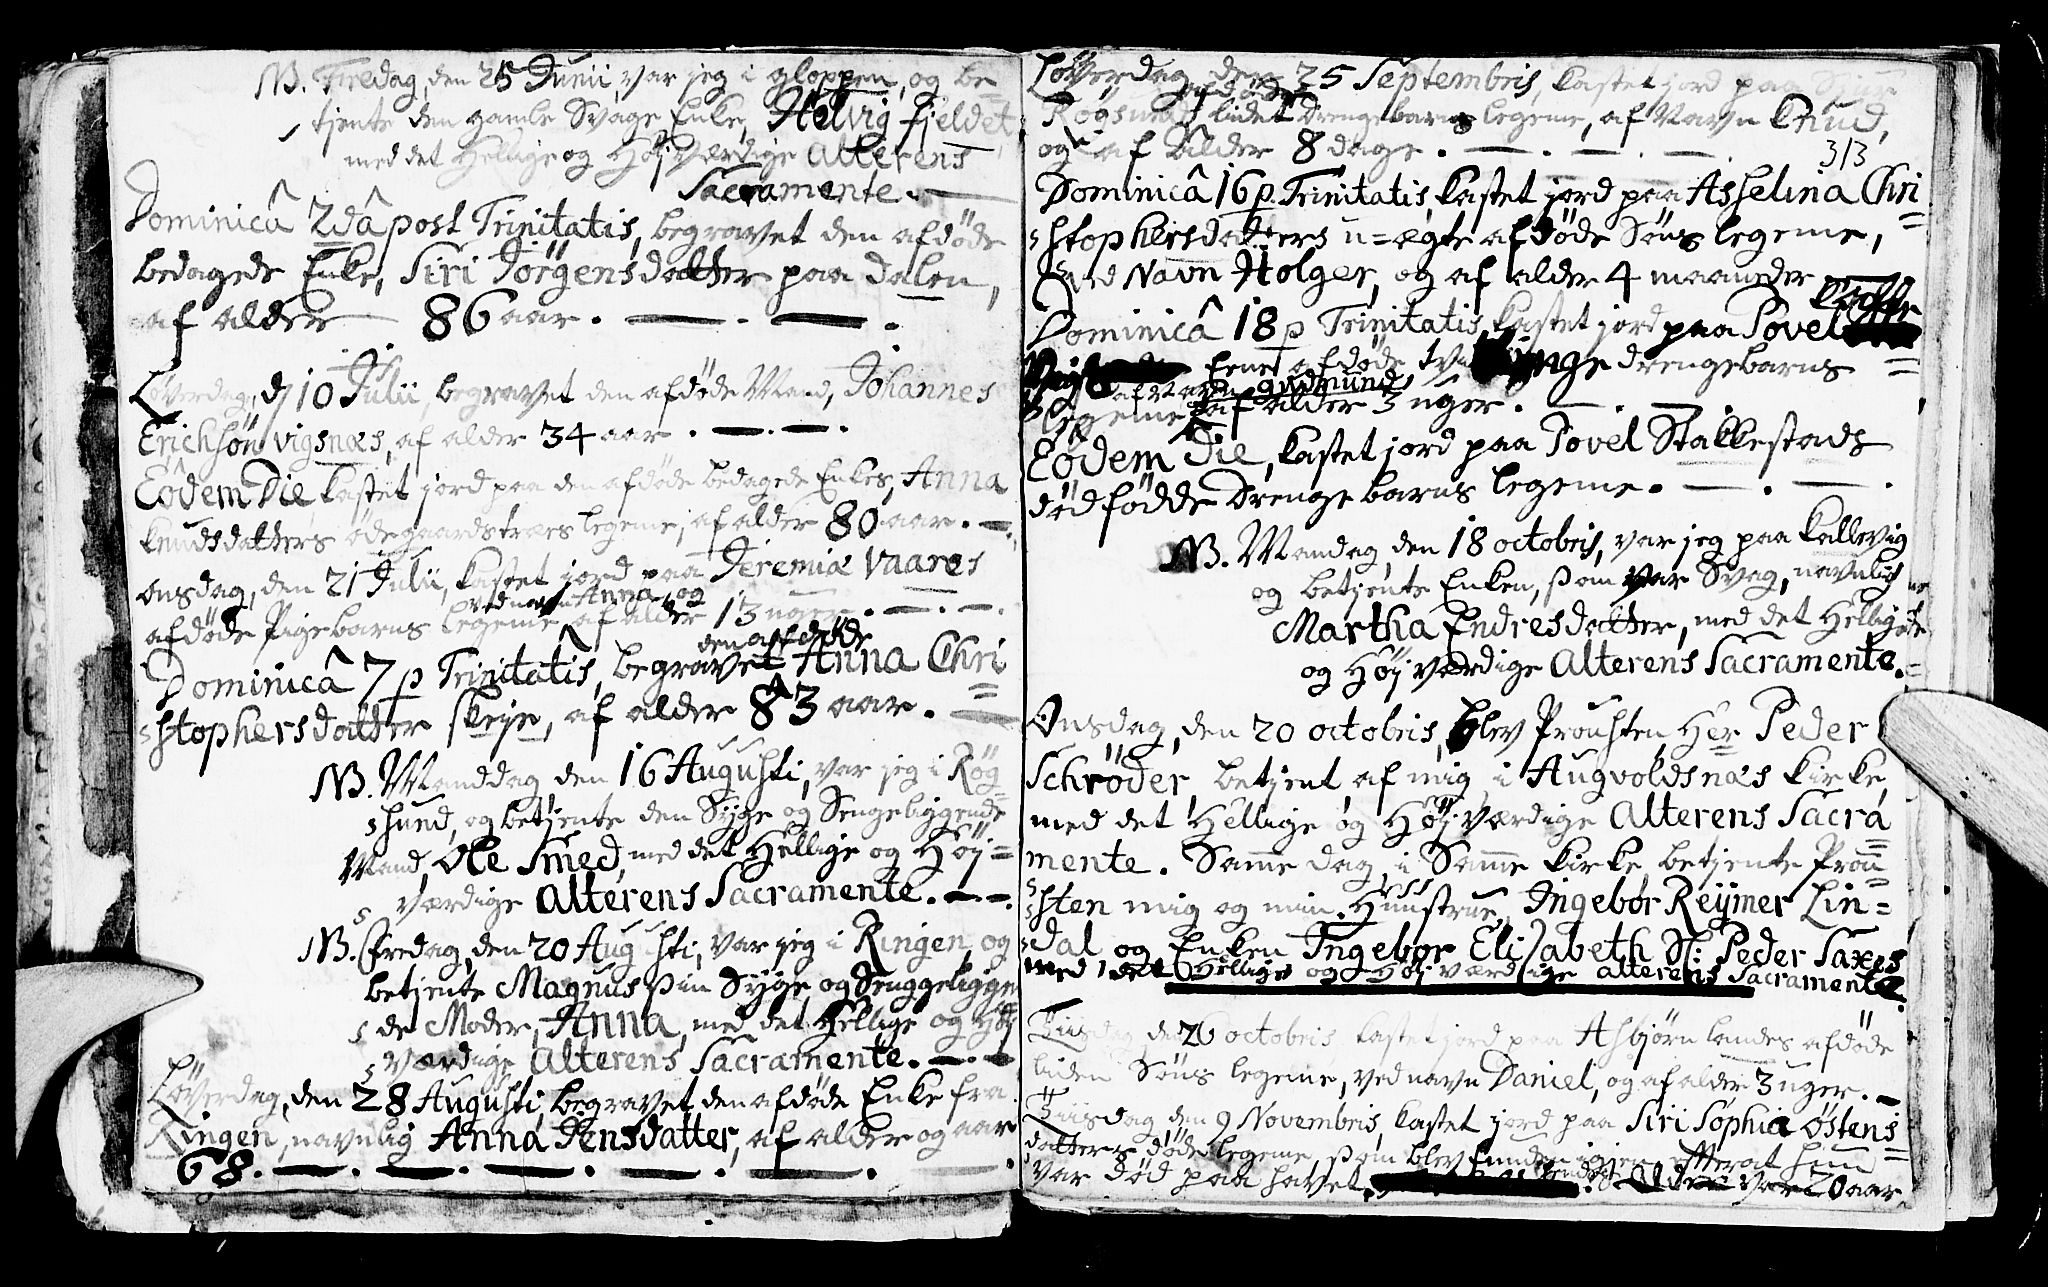 NB. Fredag, den 25 Junii, var jeg i gloppen, og be=
tjente den gamle Svage Enke, Helvig Fjeldet,
med det Hellige og Høj værdige Alterens
Sacramente.
Dominicâ 2dâ post Trinitatis, begravet den afdøde
bedagede Enke, Siri Jörgensdatter paa dalen,
af alder 86 aar.
Løverdag, d/ 10 Julii, begravet den afdøde Mand, Johannes
Erichsön vigsnæs, af alder 34 aar.
Eôdem Die kastet jord paa den afdøde bedagede Enkes, Anna
Knudsdatters ødegaardstræes legeme, af alder 80 aar.
onsdag, den 21 Julii, kastet jord paa Jeremiæ Vaares
ved navn Anna, og
afdøde Pigebarns legeme, af alder 13 uger.
den afdöde
Dominicâ 7 p Trinitatis, begravet Anna Chri=
=stophersdatter skeje, af alder 83 aar.
NB. Manddag, den 16 Augusti, var jeg i Røg=
=sund, og betjente den Syge og Sengeliggende
Mand, Ole Smed, med det Hellige og Höj=
=værdige Alterens Sacramente.
NB. Fredag, den 20 Augusti, var jeg i Ringen, og
betjente Magnus sin Syge, og Senggeliggen=
=de Moder, Anna, med det Hellige og Höj=
=værdige Alterens Sacramente.
Löverdag, den 28 Augusti, begravet den afdøde Enke fra
Ringen, navnlig Anna Jensdatter, af alder og aar
68.
Löverdag, den 25 Septembris, kastet jord paa Siur
afdøde
Røgsunds lidet Drengebarns legeme, af Navn Knud,
og af Alder 8 dage.
313
Dominicâ 16 p. Trinitatis, kastet jord paa Asselina Chri=
=stophersdatters u=ægte afdøde Söns legeme,
ved Navn Holger, og af alder 4 maaneder
Dominicâ 18 p Trinitatis, kastet jord paa Povel
Eene afdøde tvillinge drengebarns
af Navn gudmund,
legeme af alder 3 uger.
Eodem Die, kastet jord paa Povel Stakkestads
dødfødde Drenge barns legeme.
NB. Mandag, den 18 octobris, var jeg paa Kallevig
og betjente Enken, som var Svag, navnlig
Martha Endresdatter, med det Hellige
og Höj værdige Alterens Sacramente.
Onsdag, den 20 octobris, blev Prousten Her Peder
Schröder, betjent af mig i Augvoldsnæs Kirke,
med det Hellige og Höj værdige Alterens Sacra=
mente. Samme dag, i Samme Kirke, betjente Prou=
=sten mig og min Huustrue, Ingebor Reymer Lin=
=dal og Enken Ingebor Elisabeth Sl: Peder Saxes
med det Hellige og Höj værdige alterens Sacramente.
Tiisdag den 26 octobris kastet jord paa Asbjørn landes afdøde
liden Söns legeme, ved navn Daniel, og af alder 3 uger.
Tiisdag den 9 Novembris, kastet jord paa Siri Sophia Østens=
datters døde legeme, som blev funden igien, efterat hun
var død paa havet. Alder var 20 aar.